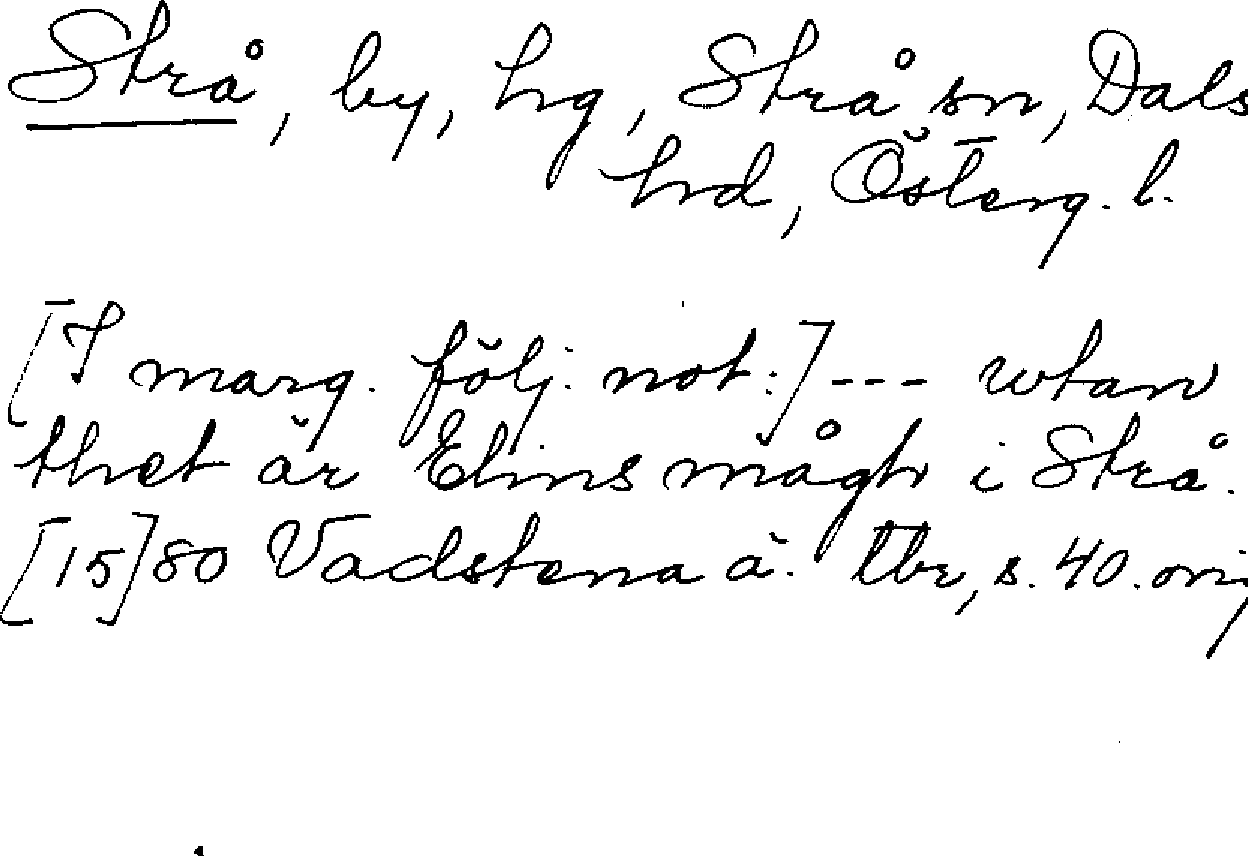 Strå, by, hg, Strå sn, Dals
hd, Österg. l.
[I marg. följ. not:] --- wtan
thet är Elins mågh i Strå.
[15]80 Vadstena ä. tbr, s. 40. orig